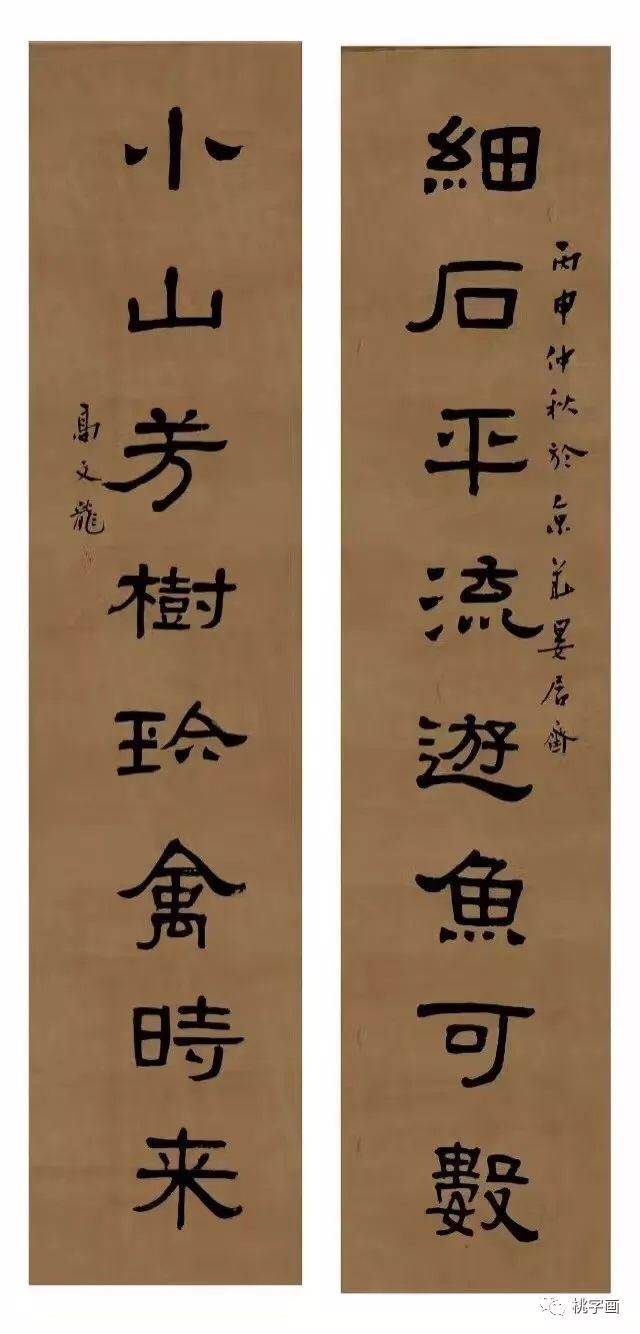 細石平流遊魚可數
丙申仲秋於京華晏居齋
小山芳樹珍禽時来
高文龍
桃字画